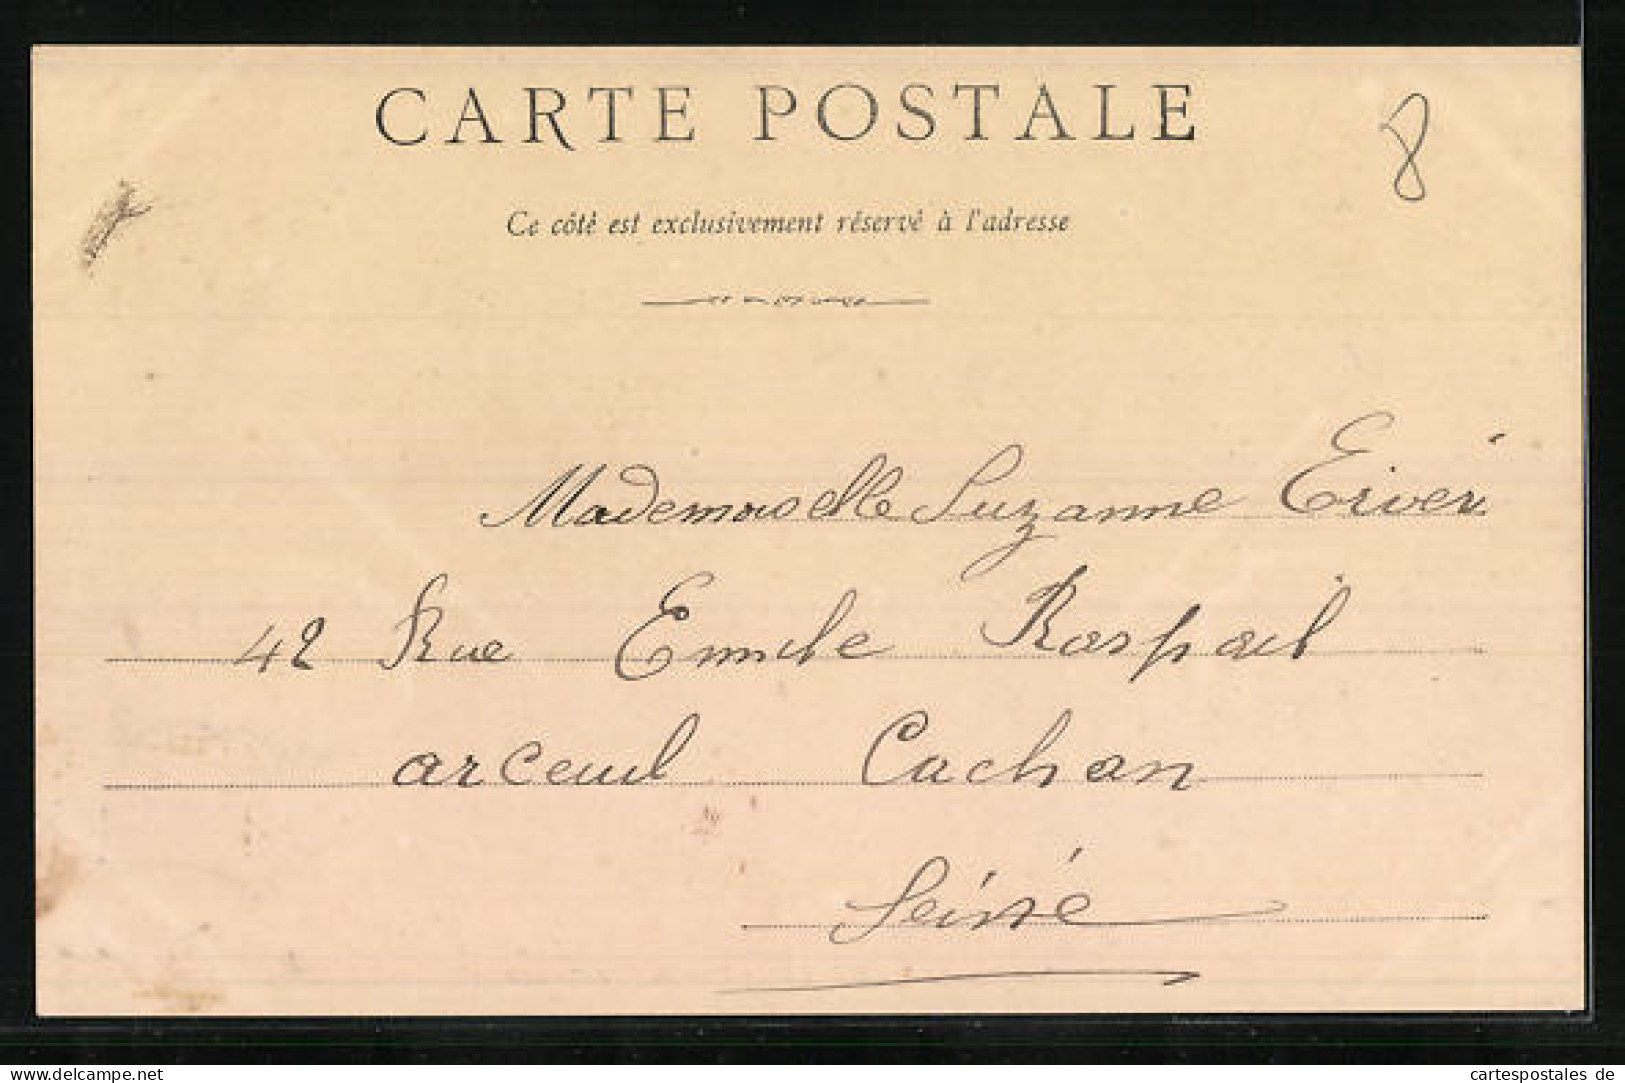 CARTE POSTALE
8
Ce côté est exclusivement réservé à l'adresse
Mademoiselle Suzanne
42 Rue Emile Raspail
arceuil Cachan
Seine
www.delcampe.net
cartespostales de